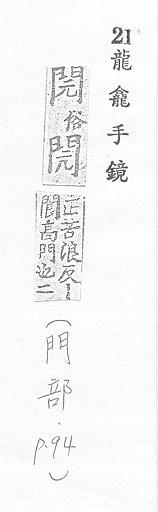 21 龍龕手鏡
俗閌
正苦浪反丨
閬高門也二
(門部．p.94)